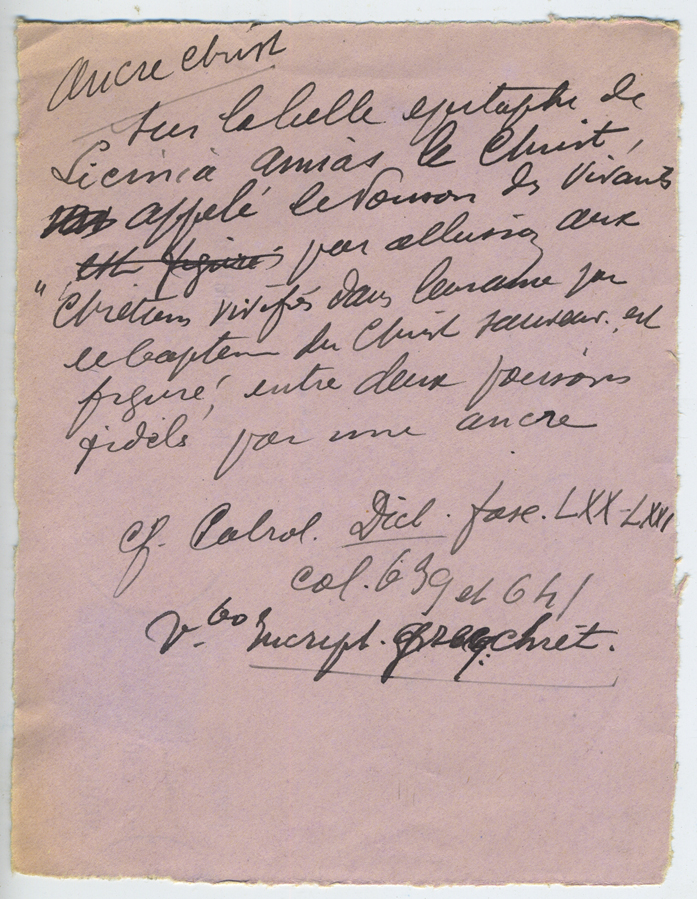 Ancre Christ
Sur la belle epitaphe de
Licinia Amias le Christ,
appelé le Poisson des Vivants
est figuré par allusion aux
" Chrétiens vivifiés dans leur ame par
le bapteme du Christ sauveur, est
figuré, entre deux poissons
fidèles par une ancre
cf. Cabrol. Dict. fasc. LXX-LXXI
col. 639 et 641
V.bo Inscript. grecq. chrét.